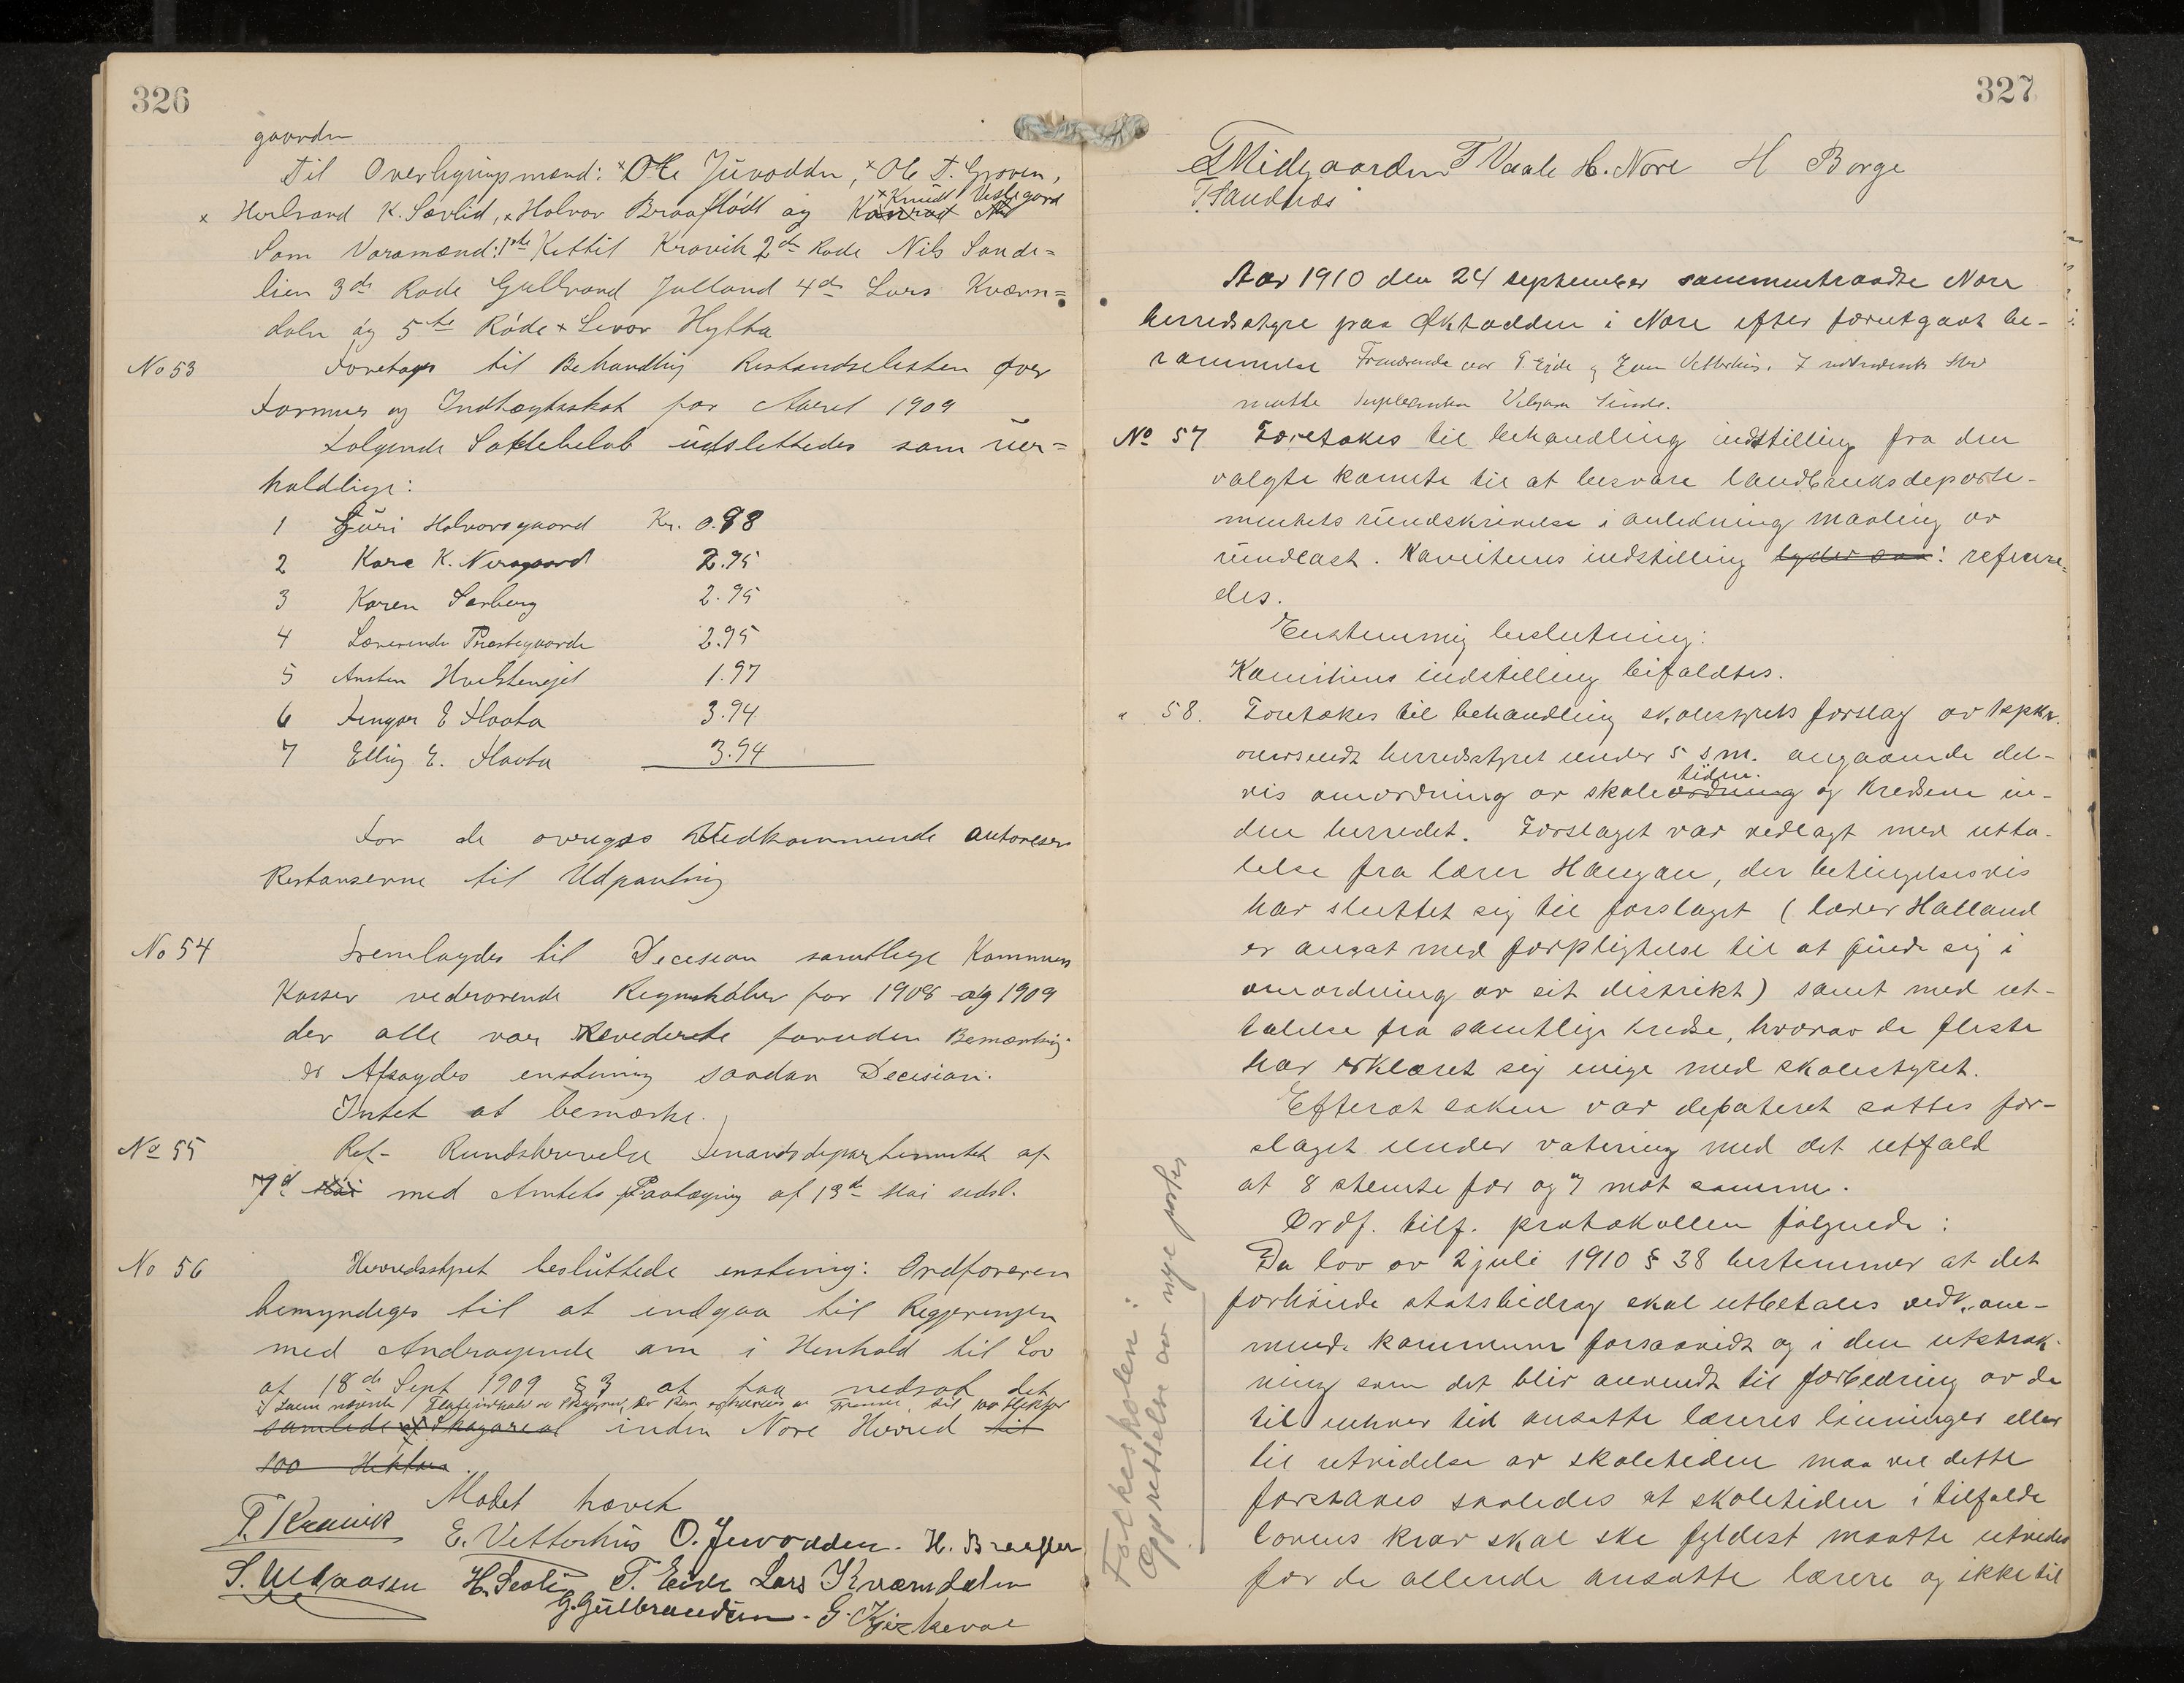 326
gaarden
Til Overligningsmænd: Ole Juvodden, Ole T. Groven,
Herbrand K. Sævlid, Halvor Braaflödt og Knudt Vestegaard
Som Varamænd: 1ste Kettil Kravik 2den Rode Nils Sande=
lien 3de Rode Gulbrand Jalland 4de Lars Kværn=
dalen og 5te Rode Levor Hytta
No 53 Foretages til Behandling Restandselisten over
Formues og Indtægtsskat for Aaret 1909
Følgende Skattebeløb udslettedes som uer=
holdlige:
1 Guri Halvorsgaard Kr. 0.98
2 Kare K. Nersgaard 2.95
3 Karen Sørberg 2.95
4 Lærerinde Præstegaarde 2.95
5 Ansten 1.97
6 E Slaata 3.94
7 Elling E. Slaata 3.94
For de øvriges Vedkommende autoriseres
Restanserne til Udpantning
No 54 Fremlagdes til Decision samtlige Kommunens
Kasser vedrørende Regnskaber for 1908 og 1909
der alle var Reviderte foruden Bemærkning
Afsagdes enstemig saadan Decision:
Intet at bemærke.
No 55 Ref- Rundskrivelse Finansdepartementet af
7d Mai med Amtets Paategning af 13de Mai sedsl.
No 56 Herredsstyret besluttede enstemig: Ordføreren
bemyndiges til at indgaa til Regjeringen
med Andragende om i Henhold til Lov
af 18de Sept 1909 § 3 at faa nedsat det
samlede Skogareal inden Nore Herred til
100 Hektar.
Mødet hævet
T. Kravik E. Vetterhus O. Juvodden. H. Braafladt
H. Sevli T. Eide Lars Kværndalen
G. Gulbrandsen. G. Kjerkevol
327
T Midgaarden T Vaale H. Nore H Borge
T. Sandnæs
Aar 1910 den 24 september sammentraadte Nore
herredsstyre paa Øktodden i Nore efter forutgaat be-
rammelse Fraværende var T. Eide og Even Vetterhus. I sidstnævntes Sted
møtte Supleanten
No 57 Foretokes til behandling indstilling fra den
valgte komite til at besvare landbruksdeparte-
mentets rundskrivelse i anledning maaling av
rundlast. Komiteens indstilling lyder saa: refere-
des.
Enstemmig beslutning:
Komiteens indstilling bifaldtes.
" 58. Foretokes til behandling skolestyrets forslag av
oversendt herredsstyret under 5 s.m. angaaende del-
vis omordning av skoleordning tiden og kredsene in-
den herredet. Forslaget var vedlagt med utta-
lelse fra lærer Haugan, der betingelsesvis
har sluttet sig til forslaget (lærer Halland
er ansat med forpligtelse til at finde sig i
omordning av sit distrikt) samt med ut-
talelse fra samtlige kredse, hvorav de fleste
har erklæret sig enige med skolestyret.
Efterat saken var debateret sattes for-
slaget under votering med det utfald
at 8 stemte for og 7 mot samme.
Ordf. tilf. protokollen følgende:
Da lov av 2 juli 1910 § 38 bestemmer at det
forhøiede statsbidrag skal utbetales vedkom-
mende kommune forsaavidt og i den utstræk-
ning som det blir anvendt til forbedring av de
til enhver tid ansatte læreres lønninger eller
til utvidelse av skoletiden maa vel dette
forstaaes saaledes at skoletiden i tilfælde
lovens krav skal ske fyldest maatte utvides
for de allerede ansatte lærere og ikke til
Folkeskolen:
Oprettelse av nye poster